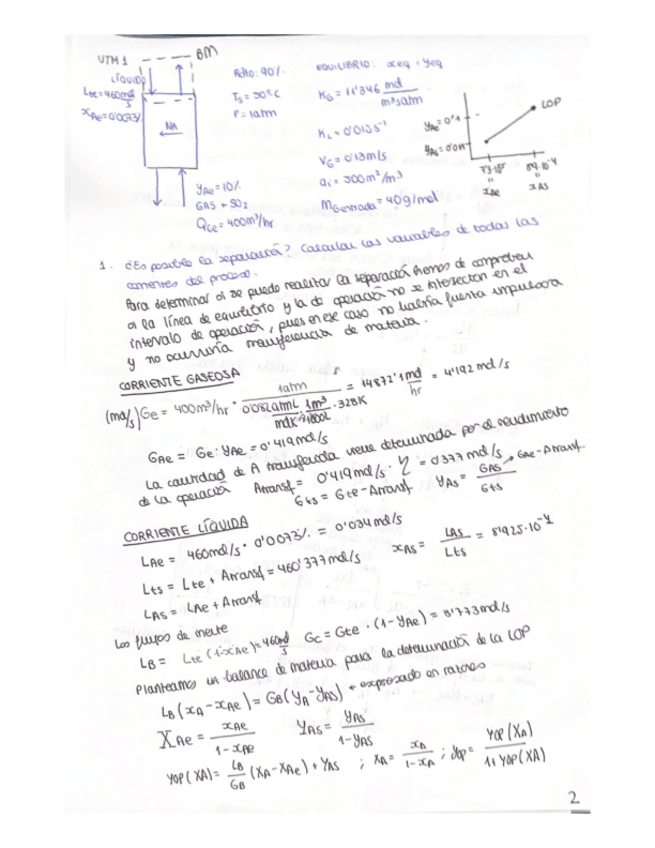 UTM 1
BM
LÍQUIDO
Lte=460mol/s
xAe=0'0073%
NA
yAe=10%
GAS + SO2
QGe=400m³/hr
Rdto: 90%
P=1atm
EQUILIBRIO: xeq = yeq
KG=11'346 mol/m³satm
KL=0'013s⁻¹
VG=0'13m/s
ai=300m²/m³
MGentrada=40g/mol
LOP
yAe=0'1
xAe
xAs
1. ¿Es posible la separación? Calcular las variables de todas las
corrientes del proceso.
Para determinar si se puede realizar la separación hemos de comprobar
si la línea de equilibrio y la de operación no se intersectan en el
intervalo de operación, pues en ese caso no habría fuerza impulsora
y no ocurriría transferencia de materia.
CORRIENTE GASEOSA
(mol/s) Ge = 400m³/hr · 1atm / 0'082 atmL/molK · 1m³/1000L · 328K = 14872'1 mol/hr = 4'192 mol/s
GAe = Ge·yAe = 0'419mol/s
La cantidad de A transferida viene determinada por el rendimiento
de la operación Atransf = 0'419mol/s · η = 0'377 mol/s
Gts = Gte-Atransf yAs = GAs/Gts → GAe-Atransf
CORRIENTE LÍQUIDA
LAe = 460mol/s · 0'0073% = 0'034mol/s
Lts = Lte + Atransf = 460'377mol/s
xAs = LAs/Lts = 8'925·10⁻⁴
LAs = LAe + Atransf
Los flujos de inerte
LB = Lte (1-xAe)=460mol/s Gc = Gte · (1-yAe) = 3'773mol/s
Planteamos un balance de materia para la determinación de la LOP
LB(xA-xAe) = GB(yA-yAs) ← expresado en razones
XAe = xAe/1-xAe YAs = yAs/1-yAs
YOP(XA) = LB/GB (XA-XAe) + YAs ; XA = xA/1-xA ; yop = YOP(XA)/1+YOP(XA)
2